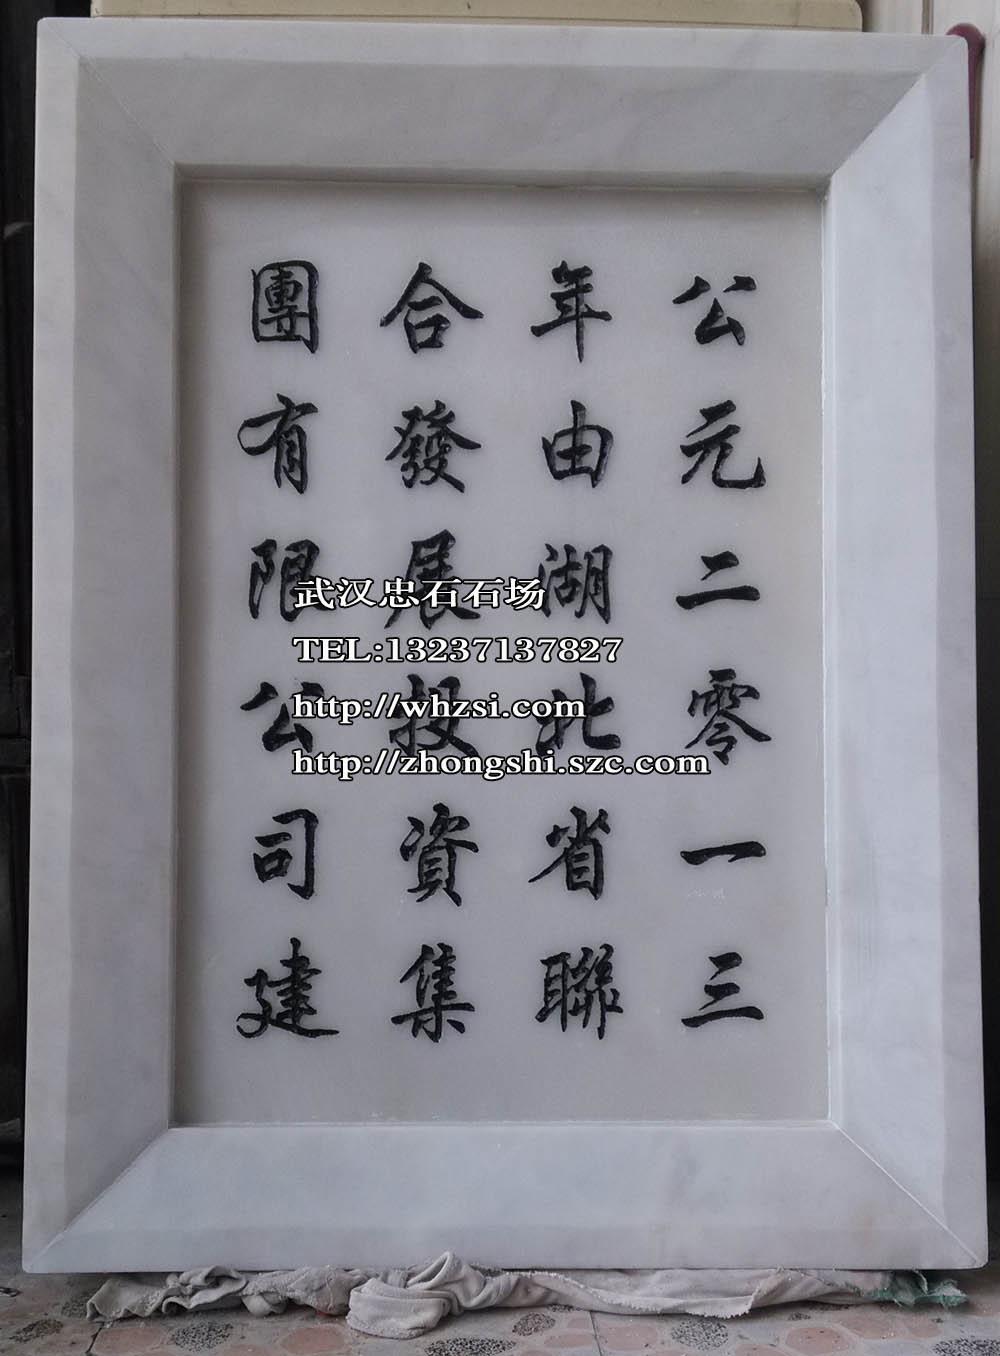 公元二零一三
年由湖北省聯
合發展投資集
團有限公司建
武汉忠石石场
TEL:13237137827
http://whzsi.com
http://zhongshi.szc.com